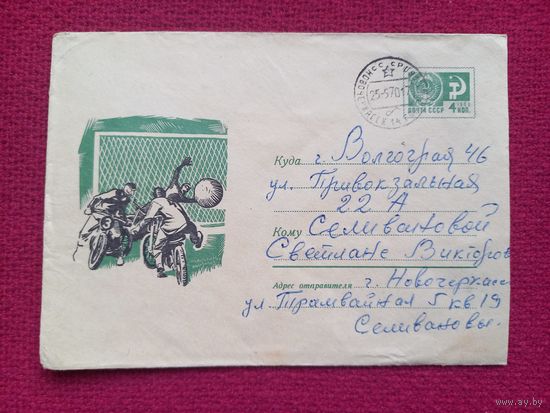 25-570
ПОЧТА СССР 4 КОП.
Куда г. Волгоград 46
ул. Привокзальная
22 А
Кому Селивановой
Светлане Викторов
Адрес отправителя г. Новочеркасс
ул. Трамвайная 5 кв 19
Селивановы.
3
www.ay.by